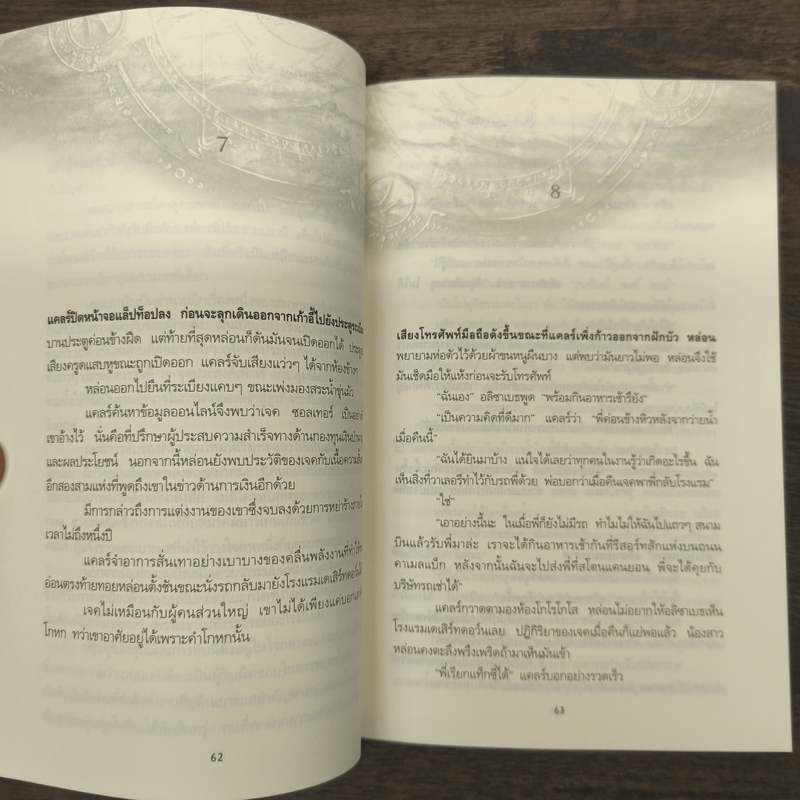 7
แคลร์ปิดหน้าจอแล็ปท็อปลง ก่อนจะลุกเดินออกจากเก้าอี้ไปยังประตูระเบียง
บานประตูค่อนข้างฝืด แต่ท้ายที่สุดหล่อนก็ดันมันจนเปิดออกได้ ประตู
เสียงครูดแสบหูขณะถูกเปิดออก แคลร์จับเสียงแว่วๆ ได้จากห้องข้างๆ
หล่อนออกไปยืนที่ระเบียงแคบๆ ขณะเพ่งมองสระน้ำขุ่นมัว
แคลร์ค้นหาข้อมูลออนไลน์จึงพบว่าเจค ซอลเทอร์ เป็นอย่างที่
เขาอ้างไว้ นั่นคือที่ปรึกษาผู้ประสบความสำเร็จทางด้านกองทุนเงินบำนาญ
และผลประโยชน์ นอกจากนี้หล่อนยังพบประวัติของเจคกับเนื้อความสั้นๆ
อีกสองสามแห่งที่พูดถึงเขาในข่าวด้านการเงินอีกด้วย
มีการกล่าวถึงการแต่งงานของเขาซึ่งจบลงด้วยการหย่าร้างภายใน
เวลาไม่ถึงหนึ่งปี
แคลร์จำอาการสั่นเทาอย่างเบาบางของคลื่นพลังงานที่ทำให้ขน
อ่อนตรงท้ายทอยหล่อนตั้งชันขณะนั่งรถกลับมายังโรงแรมเดเสิร์ทดอว์นได้
เจคไม่เหมือนกับผู้คนส่วนใหญ่ เขาไม่ได้เพียงแค่บอกเล่าคำ
โกหก ทว่าเขาอาศัยอยู่ได้เพราะคำโกหกนั้น
62
8
เสียงโทรศัพท์มือถือดังขึ้นขณะที่แคลร์เพิ่งก้าวออกจากฝักบัว หล่อน
พยายามห่อตัวไว้ด้วยผ้าขนหนูผืนบาง แต่พบว่ามันยาวไม่พอ หล่อนจึงใช้
มันเช็ดมือให้แห้งก่อนจะรับโทรศัพท์
“ฉันเอง” อลิซาเบธพูด “พร้อมกินอาหารเช้ารึยัง”
“เป็นความคิดที่ดีมาก” แคลร์ว่า “พี่ค่อนข้างหิวหลังจากว่ายน้ำ
เมื่อคืนนี้”
“ฉันได้ยินมาบ้าง แน่ใจได้เลยว่าทุกคนในงานรู้ว่าเกิดอะไรขึ้น ฉัน
เห็นสิ่งที่วาเลอรีทำไว้กับรถพี่ด้วย พ่อบอกว่าเมื่อคืนเจคพาพี่กลับโรงแรม”
“ใช่”
“เอาอย่างนี้นะ ในเมื่อพี่ก็ยังไม่มีรถ ทำไมไม่ให้ฉันไปแถวๆ สนาม
บินแล้วรับพี่มาล่ะ เราจะได้กินอาหารเช้ากันที่รีสอร์ทสักแห่งบนถนน
คาเมลแบ็ก หลังจากนั้นฉันจะไปส่งพี่ที่สโตนแคนยอน พี่จะได้คุยกับ
บริษัทรถเช่าได้”
แคลร์กวาดตามองห้องโกโรโกโส หล่อนไม่อยากให้อลิซาเบธเห็น
โรงแรมเดเสิร์ทดอว์นเลย ปฏิกิริยาของเจคเมื่อคืนก็แย่พอแล้ว น้องสาว
หล่อนคงตะลึงพรึงเพริดถ้ามาเห็นมันเข้า
“พี่เรียกแท็กซี่ได้” แคลร์บอกอย่างรวดเร็ว
63